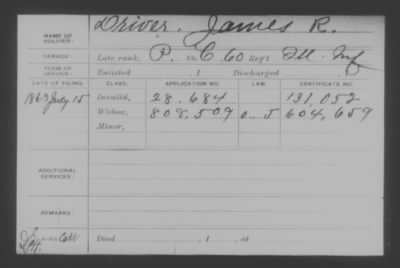 NAME OF SOLDIER: Driver, James R.
SERVICE: Late rank, P. Co. C, 60 Reg't Ill. Inf
TERM OF SERVICE: Enlisted , 1 Discharged
DATE OF FILING. CLASS. APPLICATION NO. LAW. CERTIFICATE NO.
1863 July 15 Invalid, 28.684 131,052
Widow, 808,509 O. S 604,659
Minor,
ADDITIONAL SERVICES:
REMARKS:
Died , 1 , at